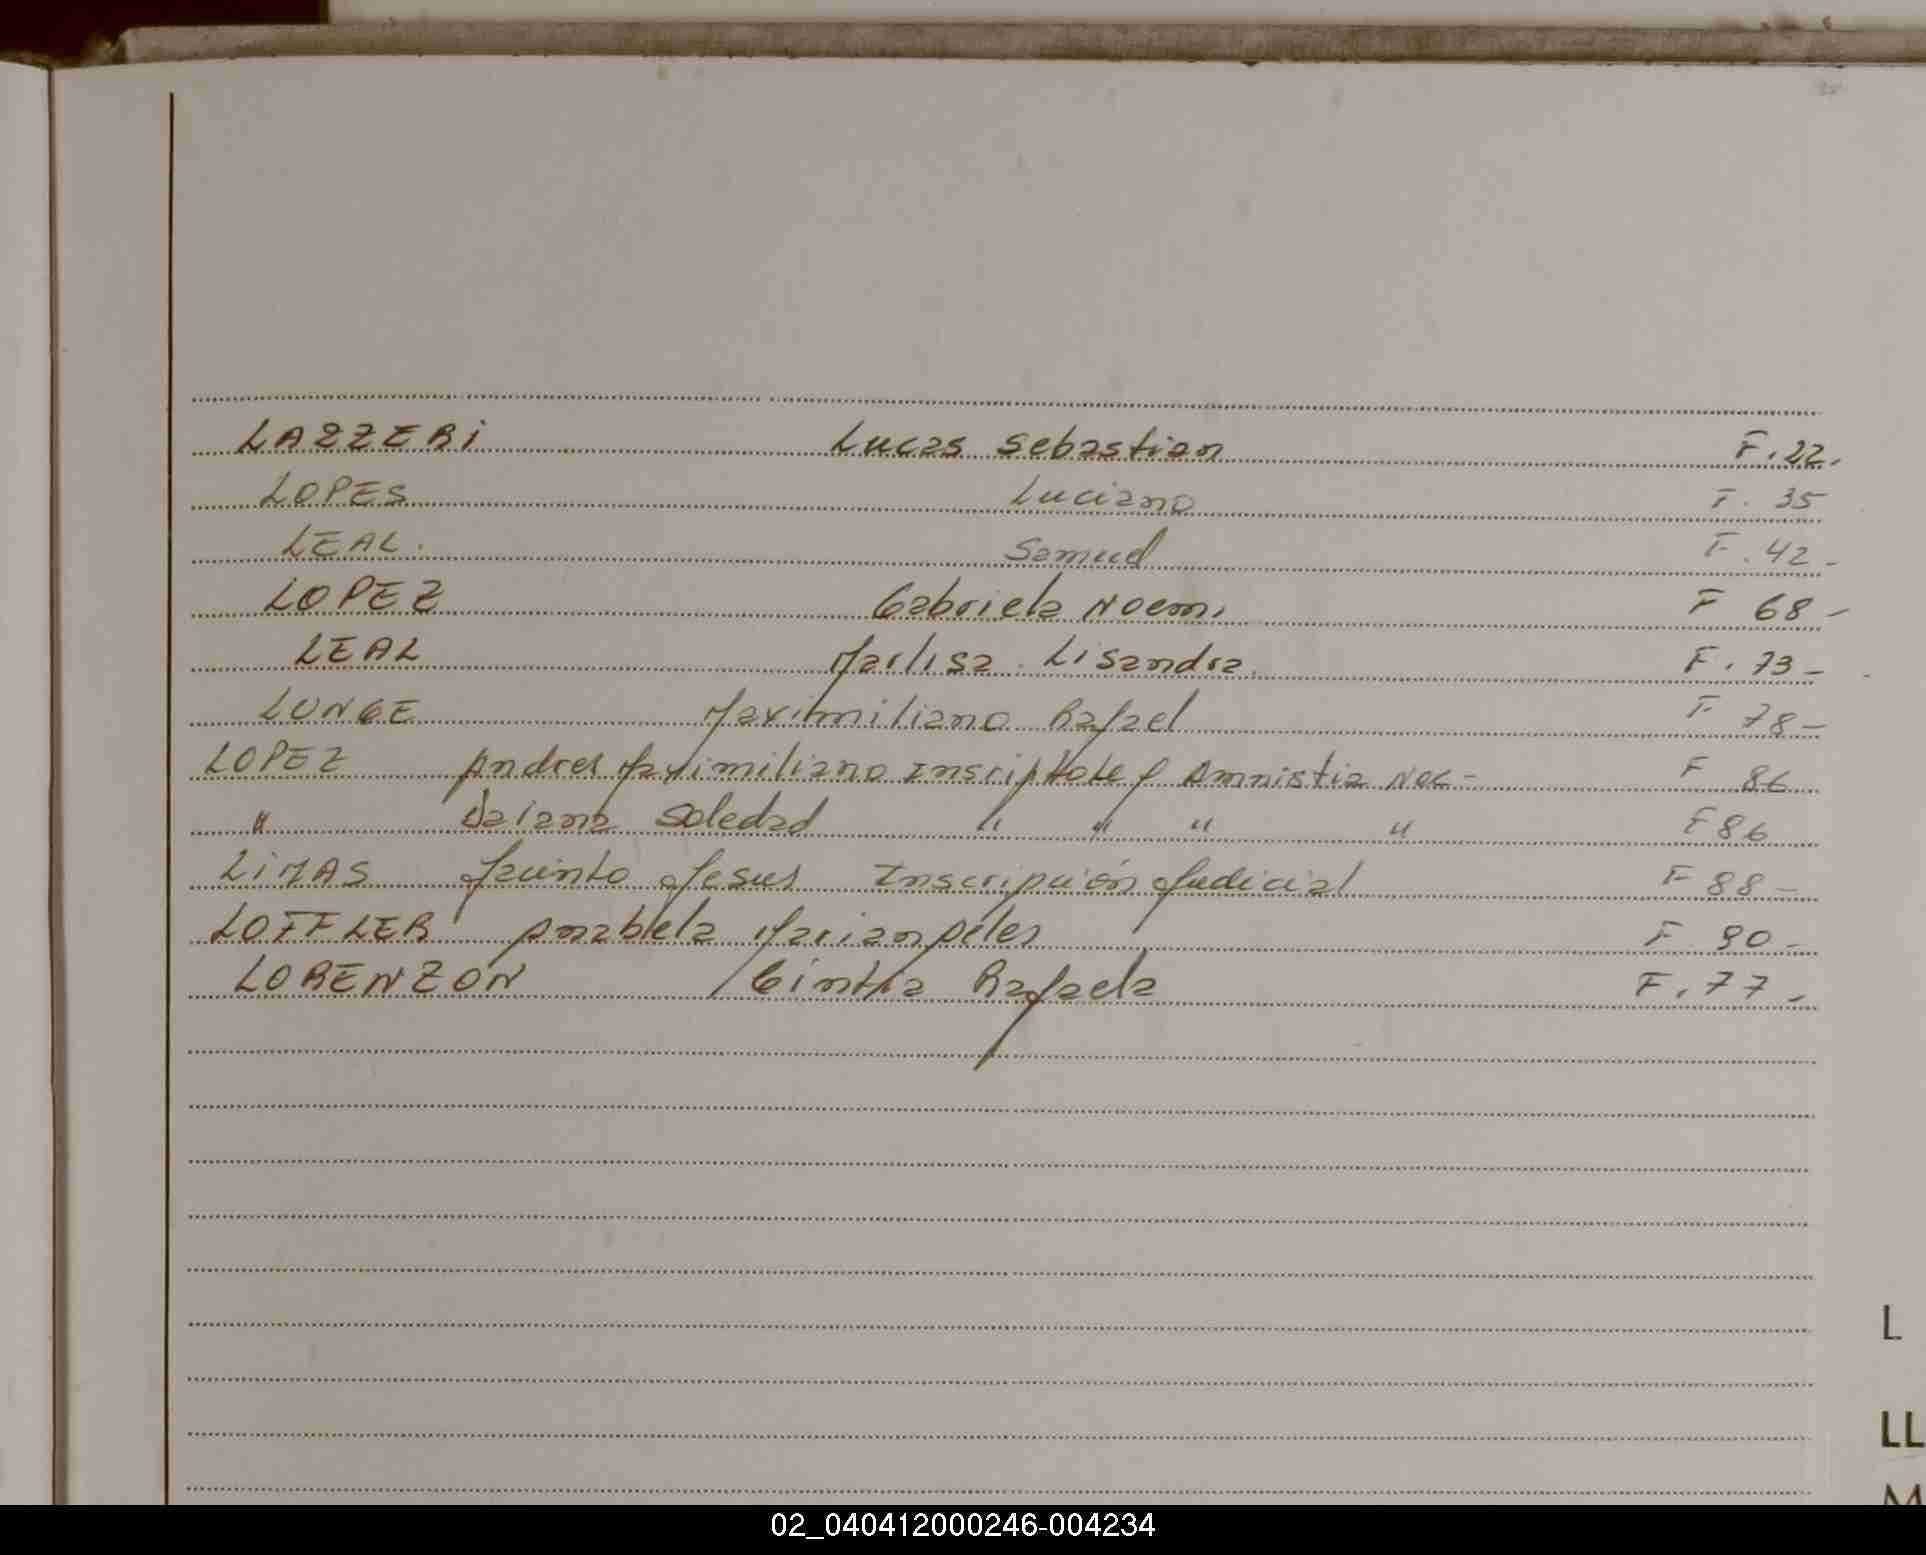 LAZZERI Lucas Sebastian F.22.
LOPES Luciano F. 35
LEAL. Samuel F. 42-
LOPEZ Gabriela Noemi F 68-
LEAL Marlisa Lisandra F. 73-
LUNGE Maximiliano Rafael F 78-
LOPEZ Andres Maximiliano Amnistia Nac- F 86
" Daiana Soledad " " " " F 86
LIMAS Jacinto Jesus Inscripción Judicial F 88-
LOFFLER Anabela Mariangeles F 90-
LORENZON Cintia Rafaela F. 77-
L
LL
M
02_040412000246-004234